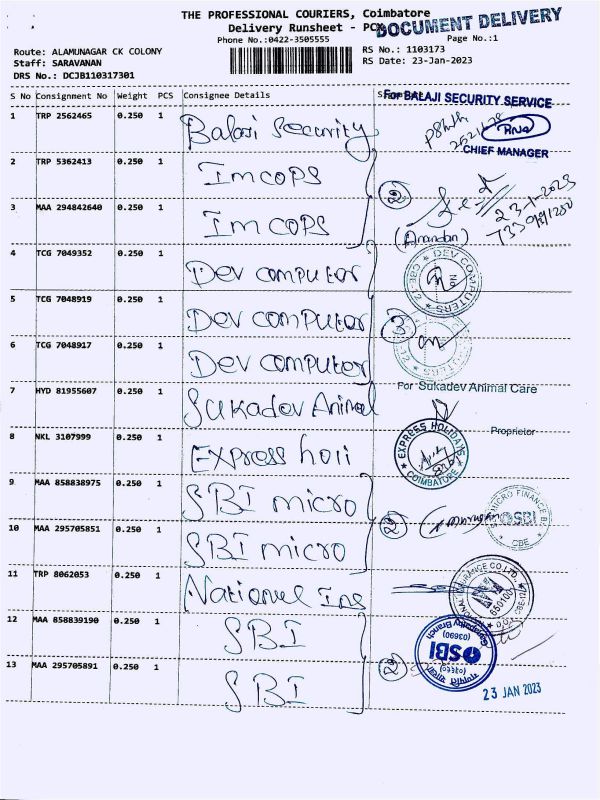 THE PROFESSIONAL COURIERS, Coimbatore
DOCUMENT DELIVERY
Delivery Runsheet - PCX
Phone No.:0422-3505555 Page No.:1
Route: ALAMUNAGAR CK COLONY RS No.: 1103173
Staff: SARAVANAN RS Date: 23-Jan-2023
DRS No.: DCJB110317301
S No Consignment No Weight PCS Consignee Details
For BALAJI SECURITY SERVICE
1 TRP 2562465 0.250 1 Balaji Security
CHIEF MANAGER
2 TRP 5362413 0.250 1 Imcops
2 23-1-2023
3 MAA 294842640 0.250 1 Imcops
(Anandan)
4 TCG 7049352 0.250 1 Dev computer
DEV COMPUTERS
5 TCG 7048919 0.250 1 Dev computer
3
6 TCG 7048917 0.250 1 Dev computer
For Sukadev Animal Care
7 HYD 81955607 0.250 1 Sukadev Animal
Proprietor
8 NKL 3107999 0.250 1 Express holi
EXPRESS HOLIDAYS
COIMBATORE
9 MAA 858838975 0.250 1 SBI micro
MICRO FINANCE
2 SBI
CBE
10 MAA 295705851 0.250 1 SBI micro
11 TRP 8062053 0.250 1 National Ins
650100
12 MAA 858839190 0.250 1 SBI
(03690)
SBI
13 MAA 295705891 0.250 1 SBI
2
23 JAN 2023